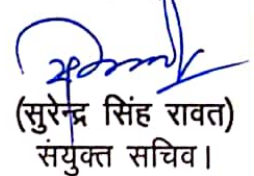 (सुरेन्द्र सिंह रावत)
संयुक्त सचिव।